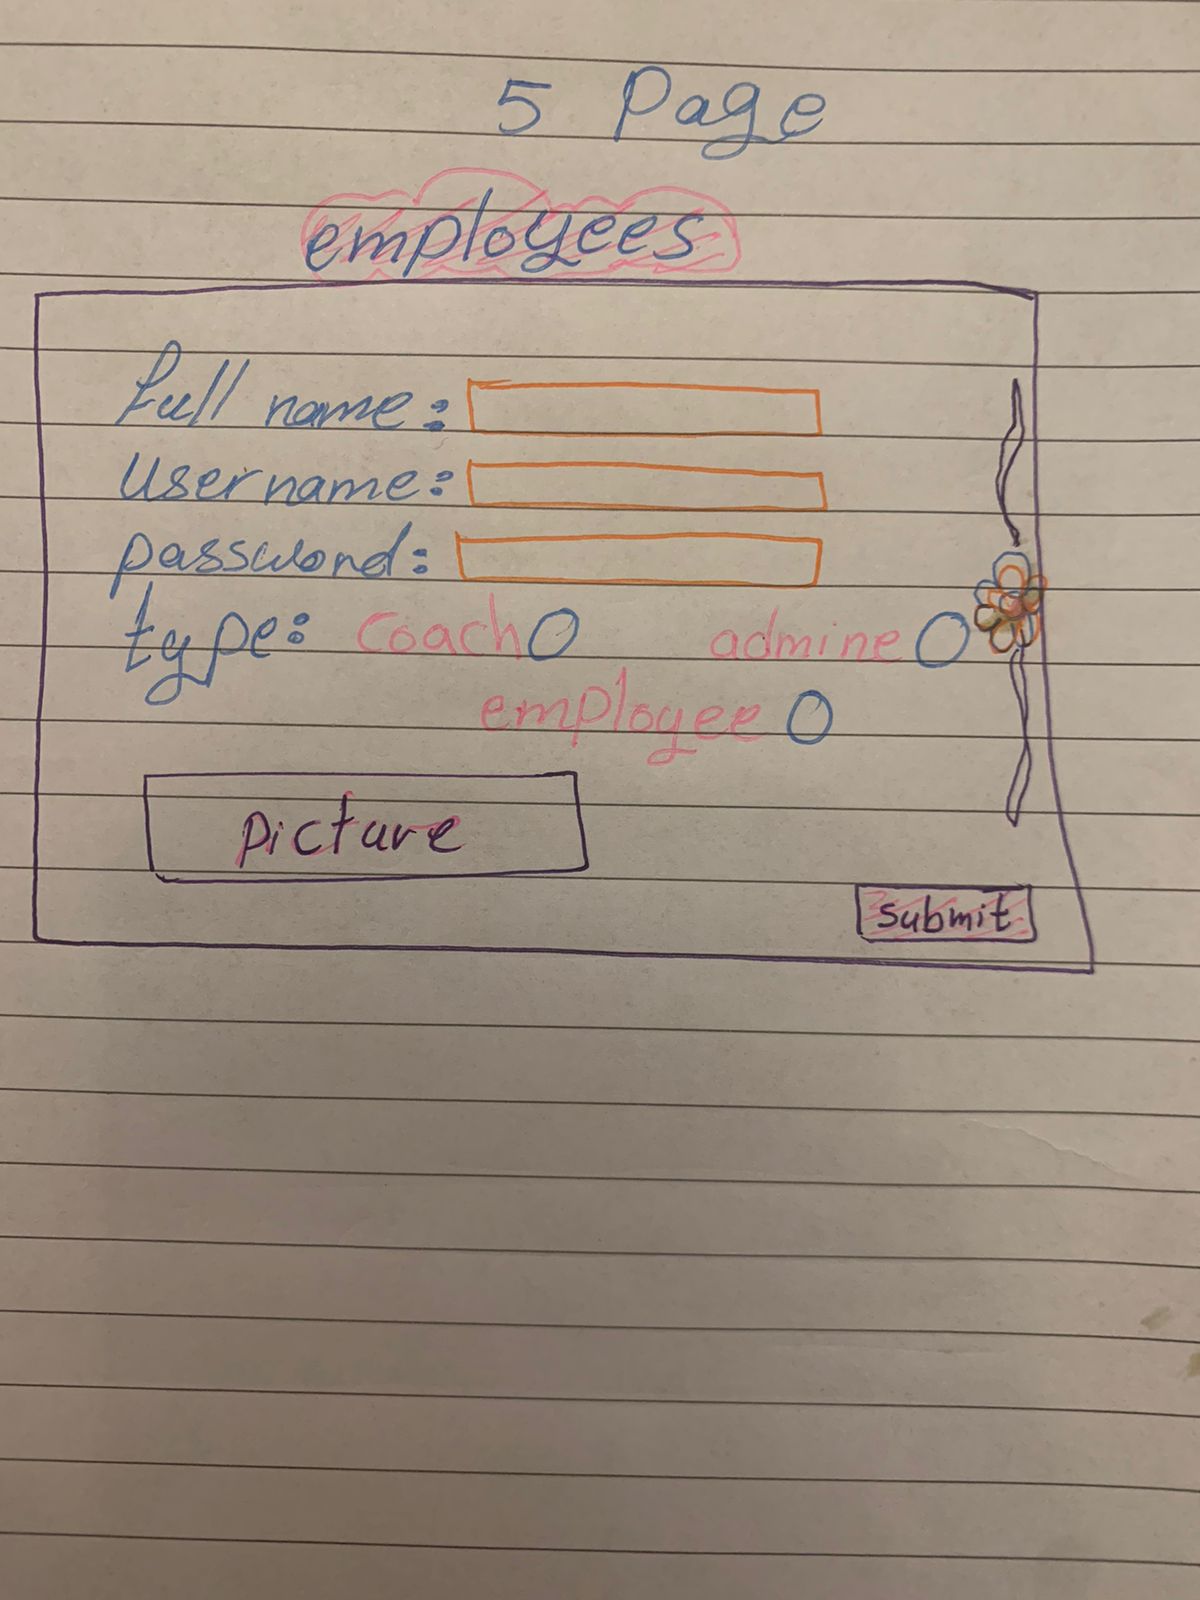 5 Page
employees
full name:
username:
password:
type: coach admine
employee
picture
submit